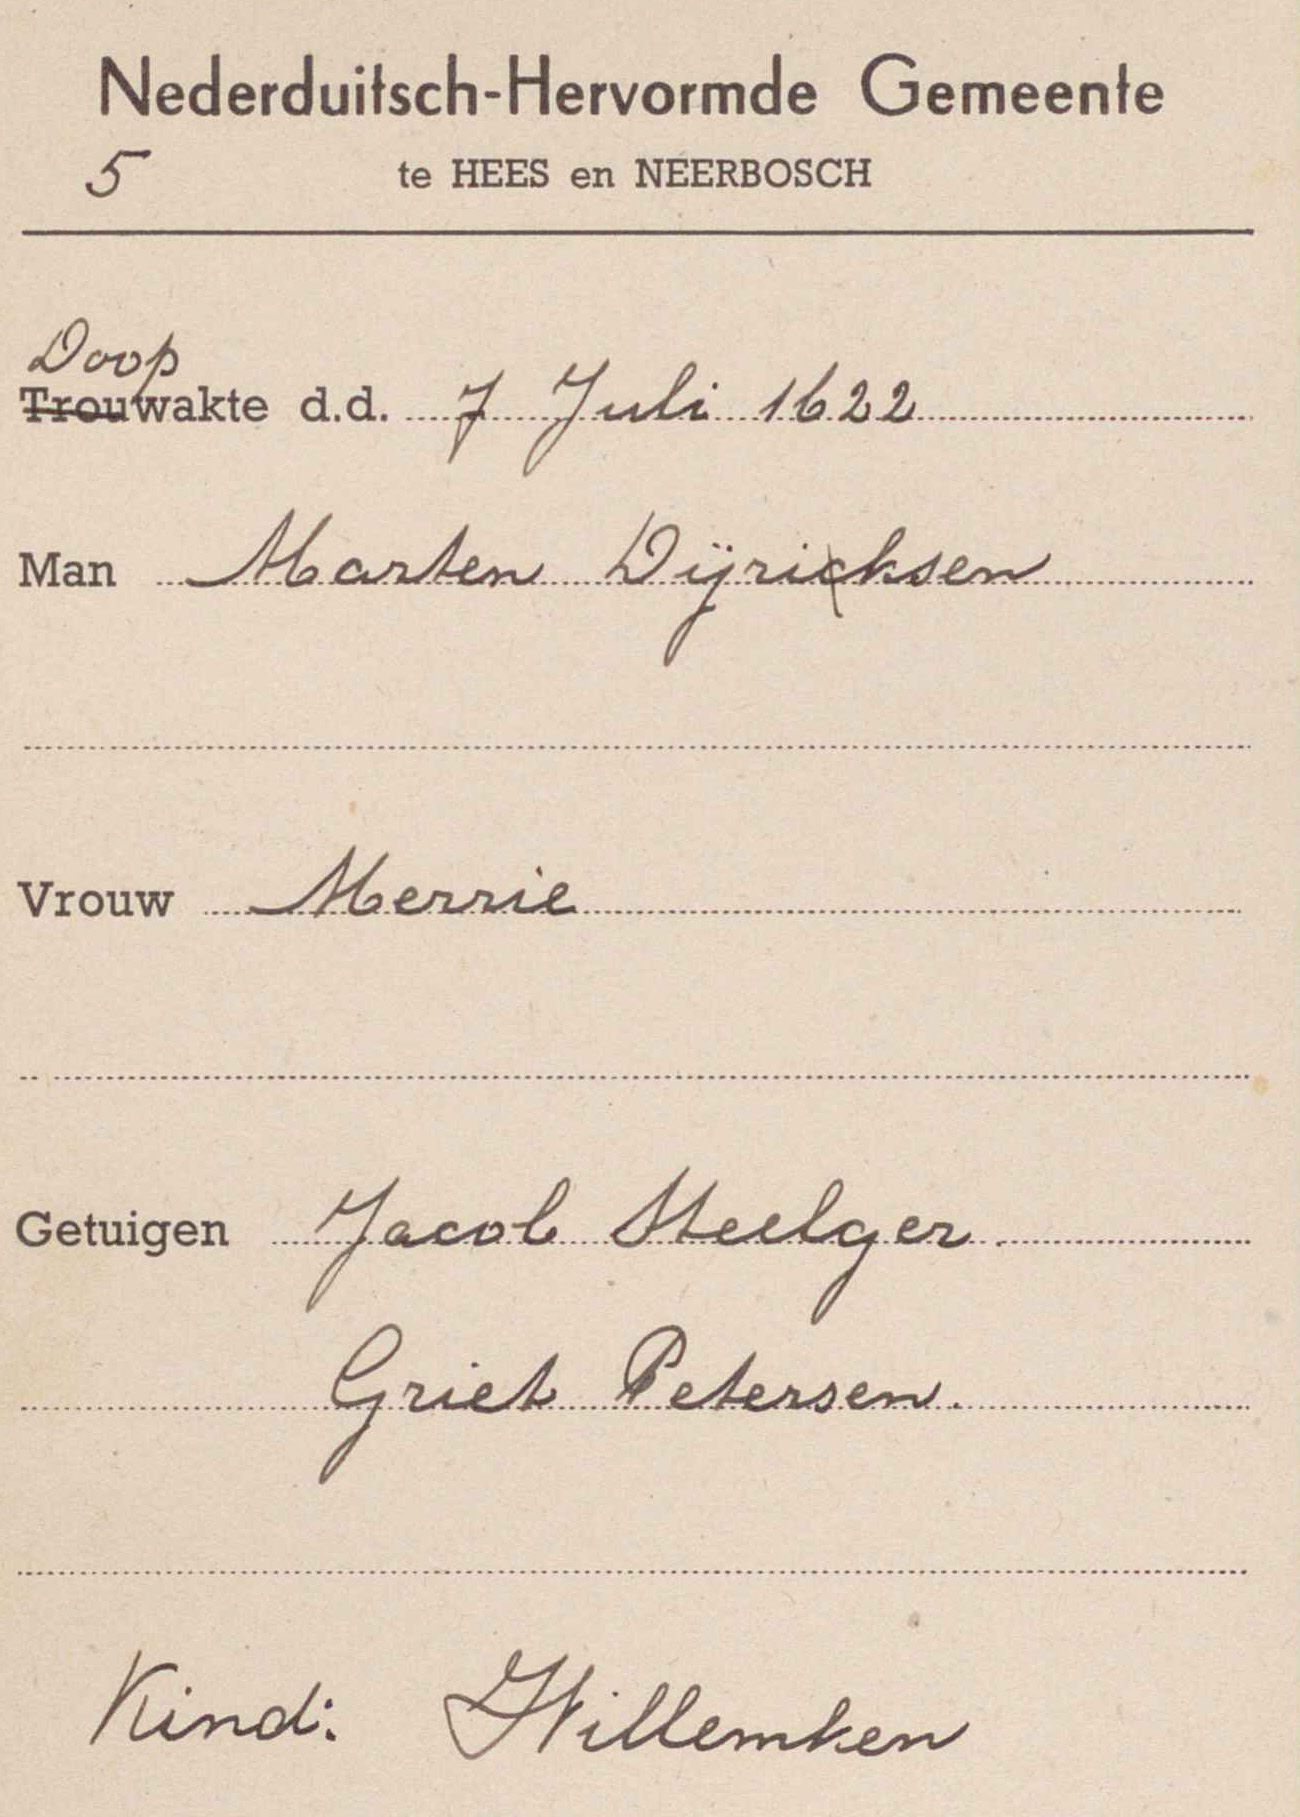 Nederduitsch-Hervormde Gemeente
5 te HEES en NEERBOSCH
Doop
Trouwakte d.d. 7 Juli 1622
Man Marten Dÿricksen
Vrouw Merrie
Getuigen Jacob Steelger.
Griet Petersen.
Kind: Willemken